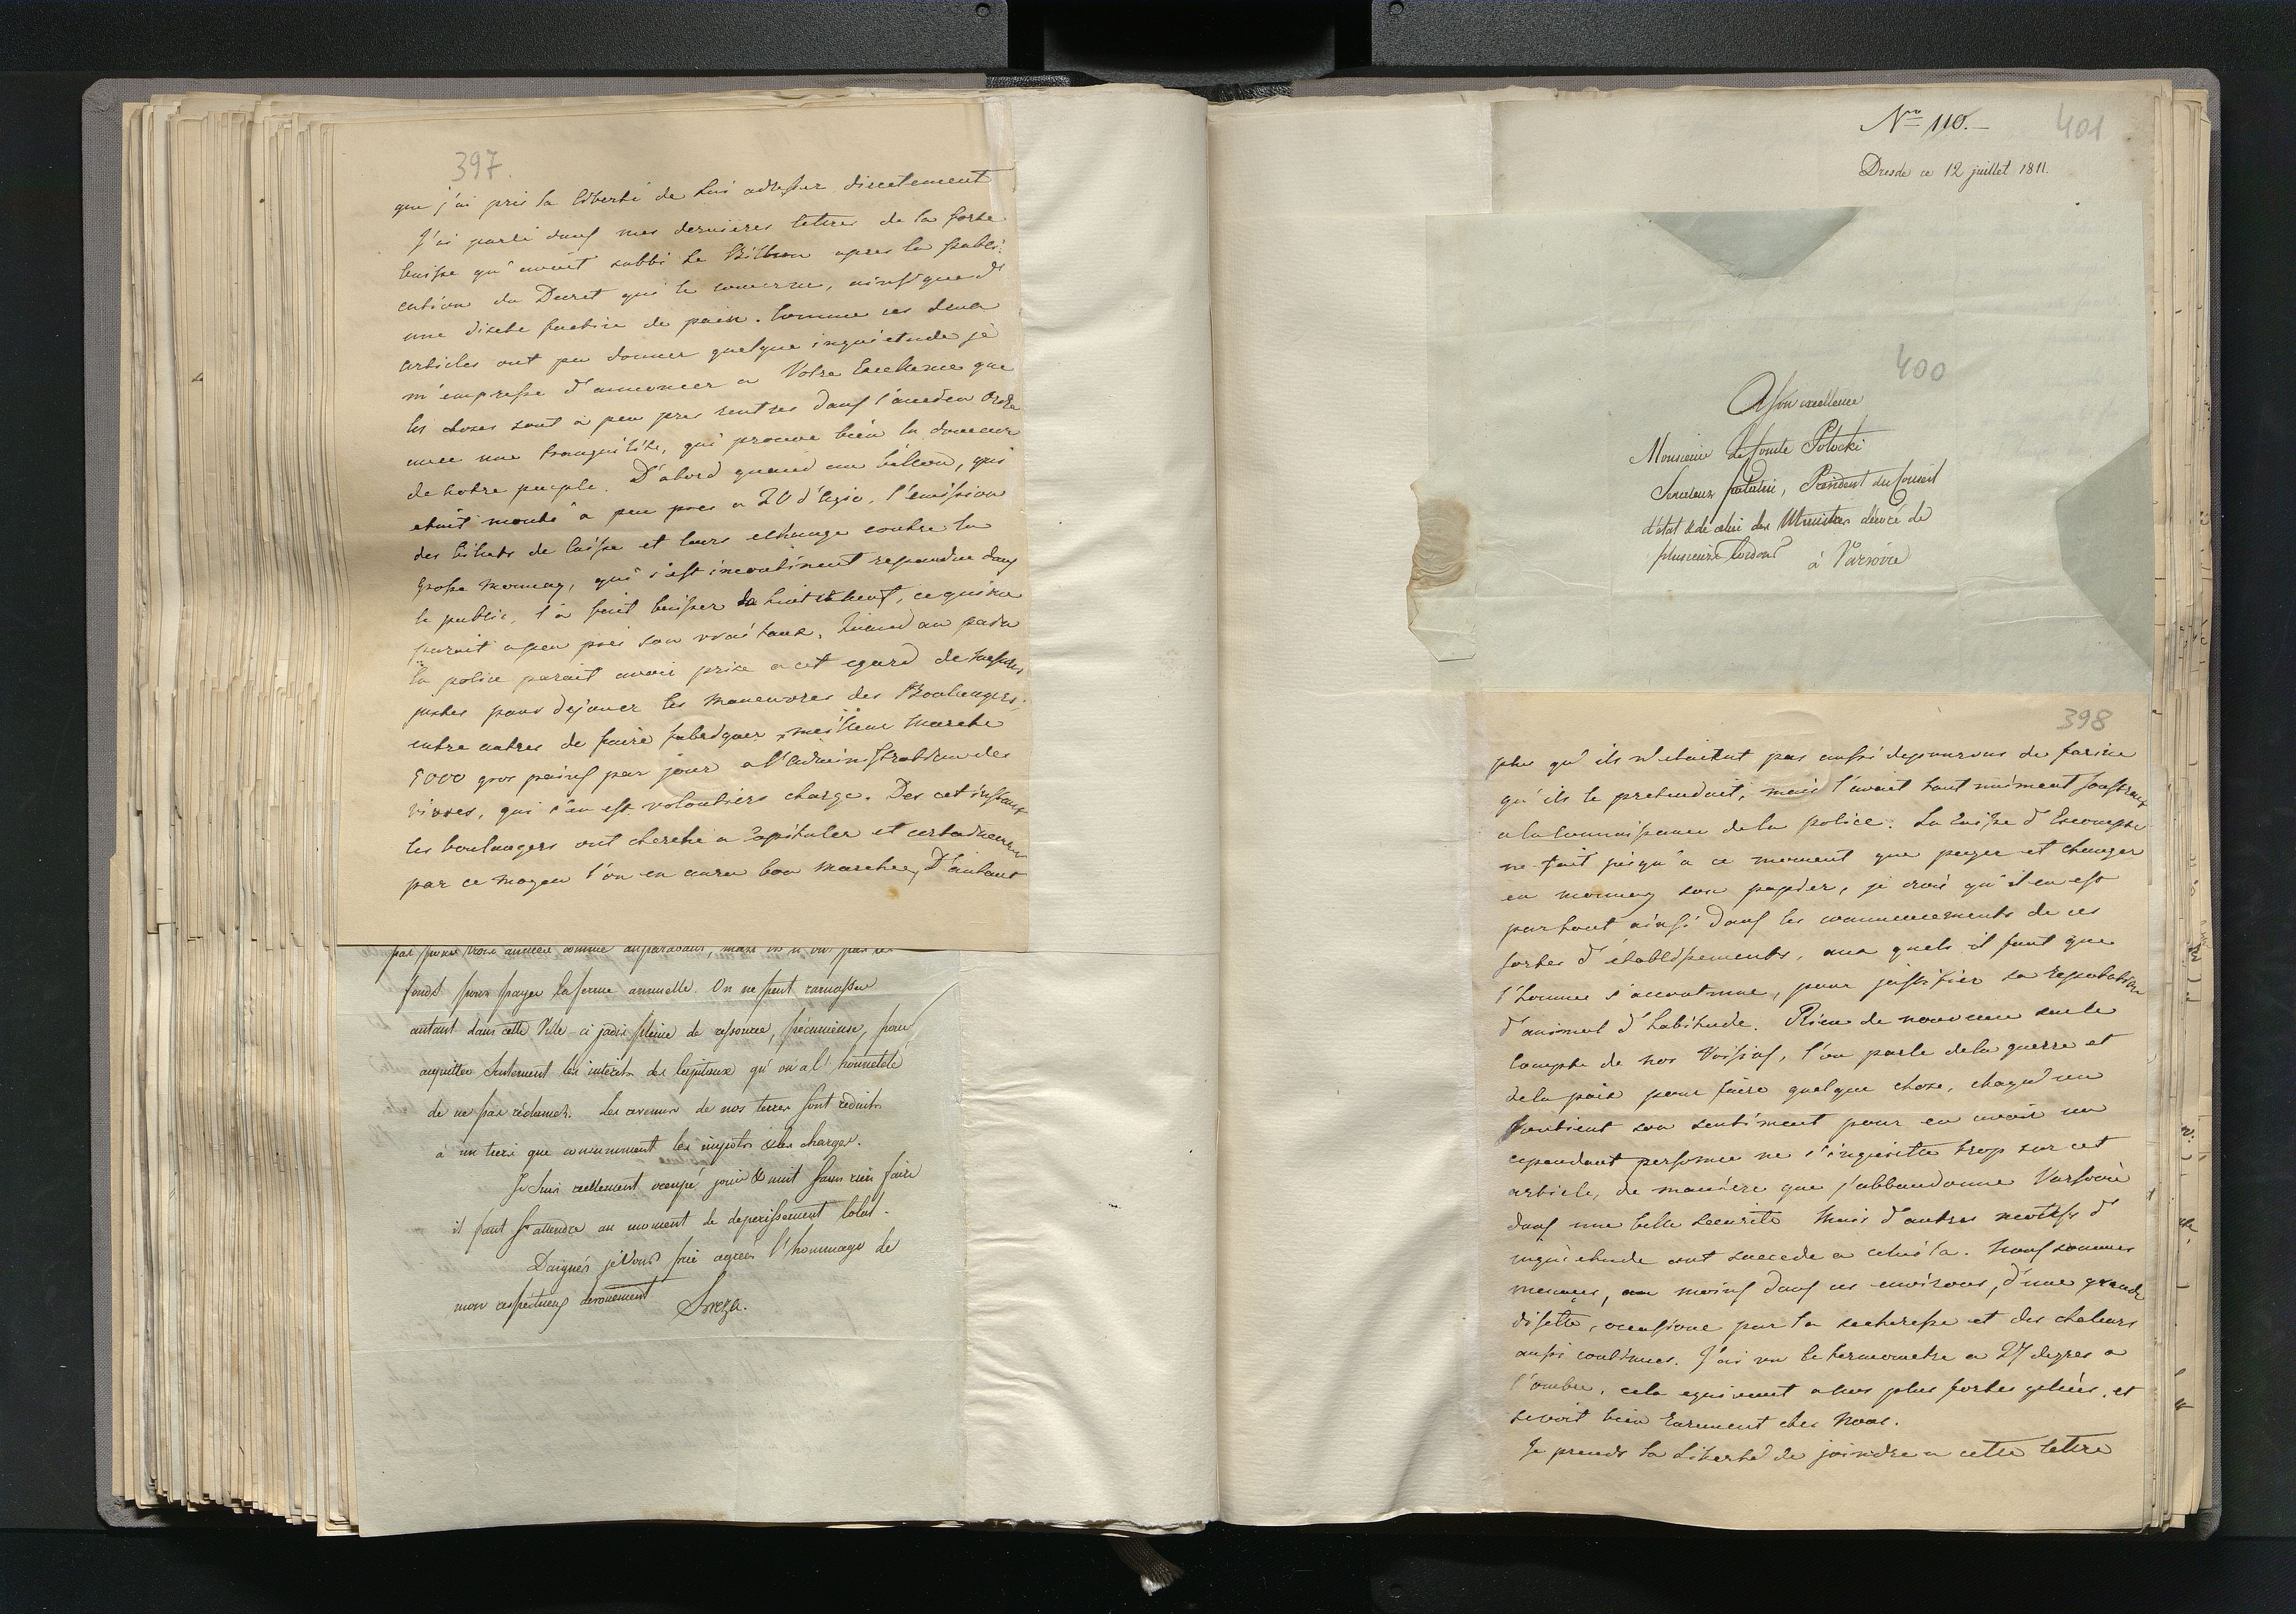 397.
que j'ai pris la liberté de lui adresser directement
J'ai parlé dans mes dernieres lettres de la forte
baisse qu'avait subbi le Billion apres la publi-
cation du Decret qui le concerne, ainsi que de
une disete factice de pain. Comme ces deux
articles ont pu donner quelque inquietude je
m'empresse d'annoncer a Votre Excellence que
les choses sont à peu pres rentres dans l'ancien ordre
avec une tranquilité, qui prouve bien la douceur
de notre peuple. D'abord quand au billon, qui
etait monté a peu pres a 20 d'agio, l'emission
des billets de caisse et leurs echange contre la
grosse monnay, qui s'est incontinent respandue dans
le public, l'a fait baisser de huit a neuf, ce qui me
parait a peu pres son vrai taux. Quand au pain
la police parait avoir prise a cet egard de mesures
justes pour dejouer les manoeuvres des Boulangers;
entre autres de faire fabriquer meilleur marche
5000 gros pains par jour a l'administration des
vivres, qui s'en est volontiers charge. Des cet instant
les boulangers ont cherche a capituler et certainement
par ce moyen l'on en aura bon marche, D'autant
pas pour trois années comme auparavant, mais on n'en pas les
fonds pour payer la ferme annuelle. On ne peut ramasser
autant dans cette Ville-ci jadis pleine de ressource, pécunieuse, pour
acquitter seulement les intérêts des Capitaux qu'on a l'honnêteté
de ne pas réclamer. Les revenus de nos terres sont reduits
à un tiers que consumment les impots & les charges.
Je suis reellement occupé jour & nuit sans rien faire
il faut s'attendre au moment de deperissement total.
Daignés je Vous prie agréer l'hommage de
mon respectueux devouement
Breza.
Nro 110.
401
Dresde ce 12 juillet 1811.
400
A Son excellence
Monsieur le Comte Potocki
Senateur palatin, Président du Conseil
d'état & de celui des Ministres décoré de
plusieurs Cordons
à Varsovie
398
plus qu'ils n'etaitent pas aussi depourvus de farine
qu'ils le pretendait, mais l'avait tout uniment soustraite
a la connaissance de la police. La Caisse d'Escompte
ne fait jusqu'a ce moment que payer et changer
en monnay son papier, je crois qu'il en est
partout ainsi dans les commencements de ces
sortes d'etablissements, aux quels il faut que
l'homme s'accoutume, pour justifier sa reputation
d'animal d'habitude. Rien de nouveau sur le
compte de nos Voisins, l'on parle de la guerre et
de la paix pour faire quelque chose, chaqu'un
soutient son sentiment pour en avoir un
cependant personne ne s'inquiette trop sur cet
article, de maniere que j'abbandonne Varsovie
dans une belle securite Mais d'autres motifs d'
inquietude ont succede a celui la. Nous sommes
menaçes, au moins dans ces environs, d'une grande
disette, occasione par la secheresse et des chaleurs
aussi continues. J'ai vu le termometre a 27 degres a
l'ombre, cela equivaut a nos plus fortes gelées, et
se voit bien rarement chez Nous.
Je prends la Liberté de joindre a cette lettre